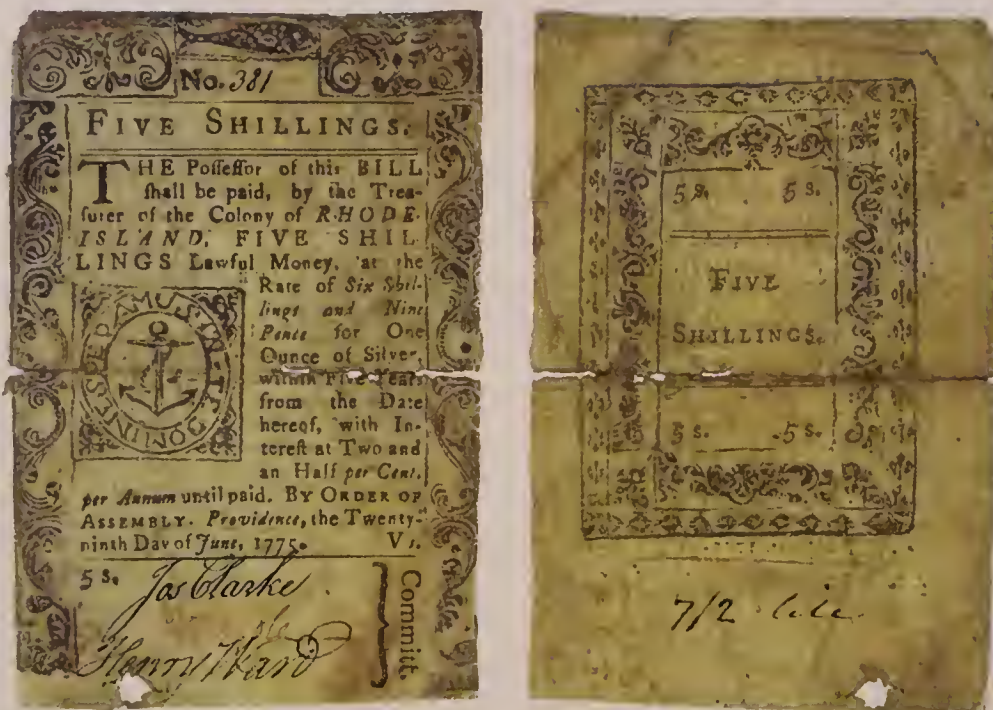 No. 381
FIVE SHILLINGS.
THE Poſſeſſor of this BILL
ſhall be paid, by the Trea-
ſurer of the Colony of RHODE-
ISLAND, FIVE SHIL-
LINGS Lawful Money, at the
Rate of Six Shil-
lings and Nine
Pence for One
Ounce of Silver,
within Five Years
from the Date
hereof, with In-
tereſt at Two and
an Half per Cent.
per Annum until paid. BY ORDER OF
ASSEMBLY. Providence, the Twenty-
ninth Day of June, 1775. VI.
IN TE DOMINE SPERAMUS
5 s. Jos Clarke
Henry Ward
Committ.
5 s. 5 s.
FIVE
SHILLINGS.
5 s. 5 s.
7/2